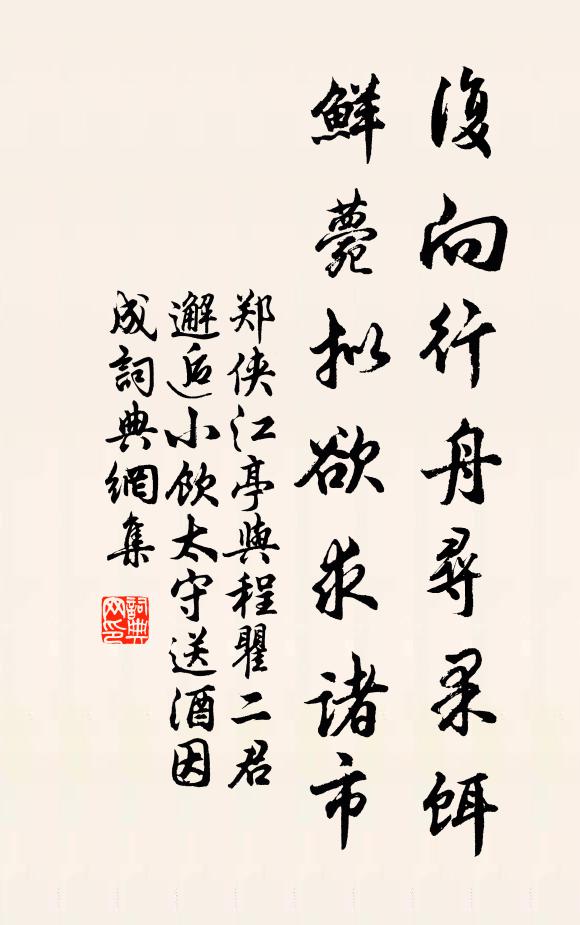 復向行舟尋果餌
鮮薨拟欲求諸市
郑侠江亭與程瞿二君
邂逅小飲太守送酒因
成詞典網集
詞典网印